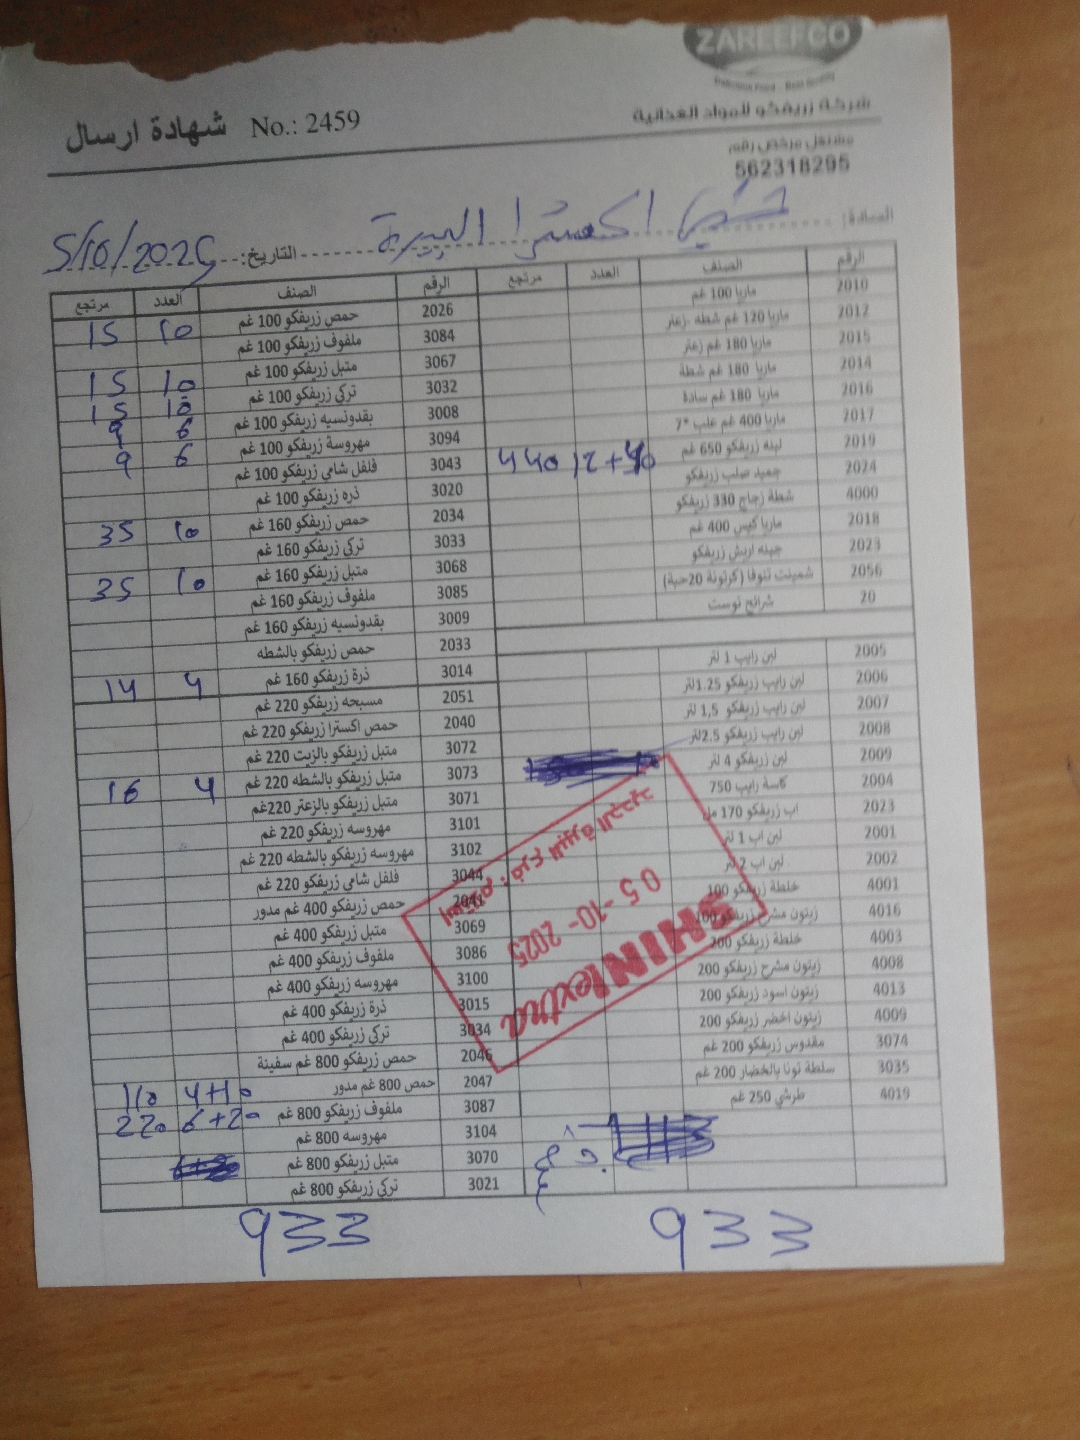 ZAREEFCO
Delicious Food - Best Quality
شركة زريفكو للمواد الغذائية
شهادة ارسال No.: 2459
مشتغل مرخص رقم
562318295
السادة: اكسترا البيرة التاريخ: 5/10/2025
الرقم الصنف العدد مرتجع الرقم الصنف العدد مرتجع
2010 ماريا 100 غم
2012 ماريا 120 غم شطه -زعتر
2015 ماريا 180 غم زعتر
2014 ماريا 180 غم شطة
2016 ماريا 180 غم سادة
2017 ماريا 400 غم علب *7
2019 لبنه زريفكو 650 غم 440
2024 جميد صلب زريفكو
4000 شطة زجاج 330 زريفكو
2018 ماريا كيس 400 غم
2023 جبنه اريش زريفكو
2056 شمينت تنوفا (كرتونة 20حبة)
20 شرائح توست
2005 لبن رايب 1 لتر
2006 لبن رايب زريفكو 1.25لتر
2007 لبن رايب زريفكو 1,5 لتر
2008 لبن رايب زريفكو 2.5لتر
2009 لبن زريفكو 4 لتر
2004 كاسة رايب 750
2023 اب زريفكو 170 مل
2001 لبن اب 1 لتر
2002 لبن اب 2 لتر
4001 خلطة زريفكو 100
4016 زيتون مشرح زريفكو 100
4003 خلطة زريفكو 200
4008 زيتون مشرح زريفكو 200
4013 زيتون اسود زريفكو 200
4009 زيتون اخضر زريفكو 200
3074 مقدوس زريفكو 200 غم
3035 سلطة تونا بالخضار 200 غم
4019 طرشي 250 غم
2026 حمص زريفكو 100 غم 10 15
3084 ملفوف زريفكو 100 غم
3067 متبل زريفكو 100 غم 10 15
3032 تركي زريفكو 100 غم 10 15
3008 بقدونسيه زريفكو 100 غم 6 9
3094 مهروسة زريفكو 100 غم 6 9
3043 فلفل شامي زريفكو 100 غم
3020 ذره زريفكو 100 غم
2034 حمص زريفكو 160 غم 10 35
3033 تركي زريفكو 160 غم
3068 متبل زريفكو 160 غم 10 35
3085 ملفوف زريفكو 160 غم
3009 بقدونسيه زريفكو 160 غم
2033 حمص زريفكو بالشطه
3014 ذرة زريفكو 160 غم 4 14
2051 مسبحه زريفكو 220 غم
2040 حمص اكسترا زريفكو 220 غم
3072 متبل زريفكو بالزيت 220 غم
3073 متبل زريفكو بالشطه 220 غم 4 16
3071 متبل زريفكو بالزعتر 220غم
3101 مهروسه زريفكو 220 غم
3102 مهروسه زريفكو بالشطه 220 غم
3044 فلفل شامي زريفكو 220 غم
2041 حمص زريفكو 400 غم مدور
3069 متبل زريفكو 400 غم
3086 ملفوف زريفكو 400 غم
3100 مهروسه زريفكو 400 غم
3015 ذرة زريفكو 400 غم
3034 تركي زريفكو 400 غم
2046 حمص زريفكو 800 غم سفينة
2047 حمص 800 غم مدور 4+10 110
3087 ملفوف زريفكو 800 غم 6+20 220
3104 مهروسه 800 غم
3070 متبل زريفكو 800 غم
3021 تركي زريفكو 800 غم
SHINIextra
05-10-2025
933
933